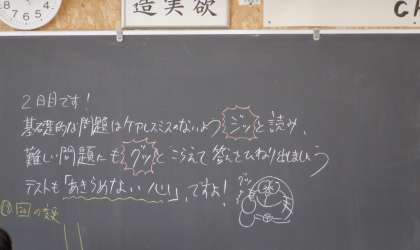 造実欲
2日目です!
基礎的な問題はケアレスミスのないようジッと読み、
難しい問題にもグッとこらえて答えをひねり出しましょう
テストも「あきらめない心」、ですよ!
グッ